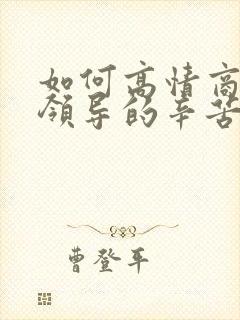 如何高情商
领导的辛苦
曹登平